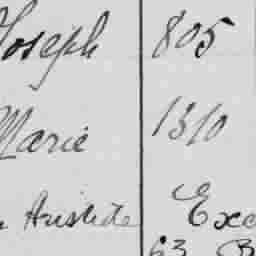 Joseph 805
Marie 1310
Aristide Exc
63 B